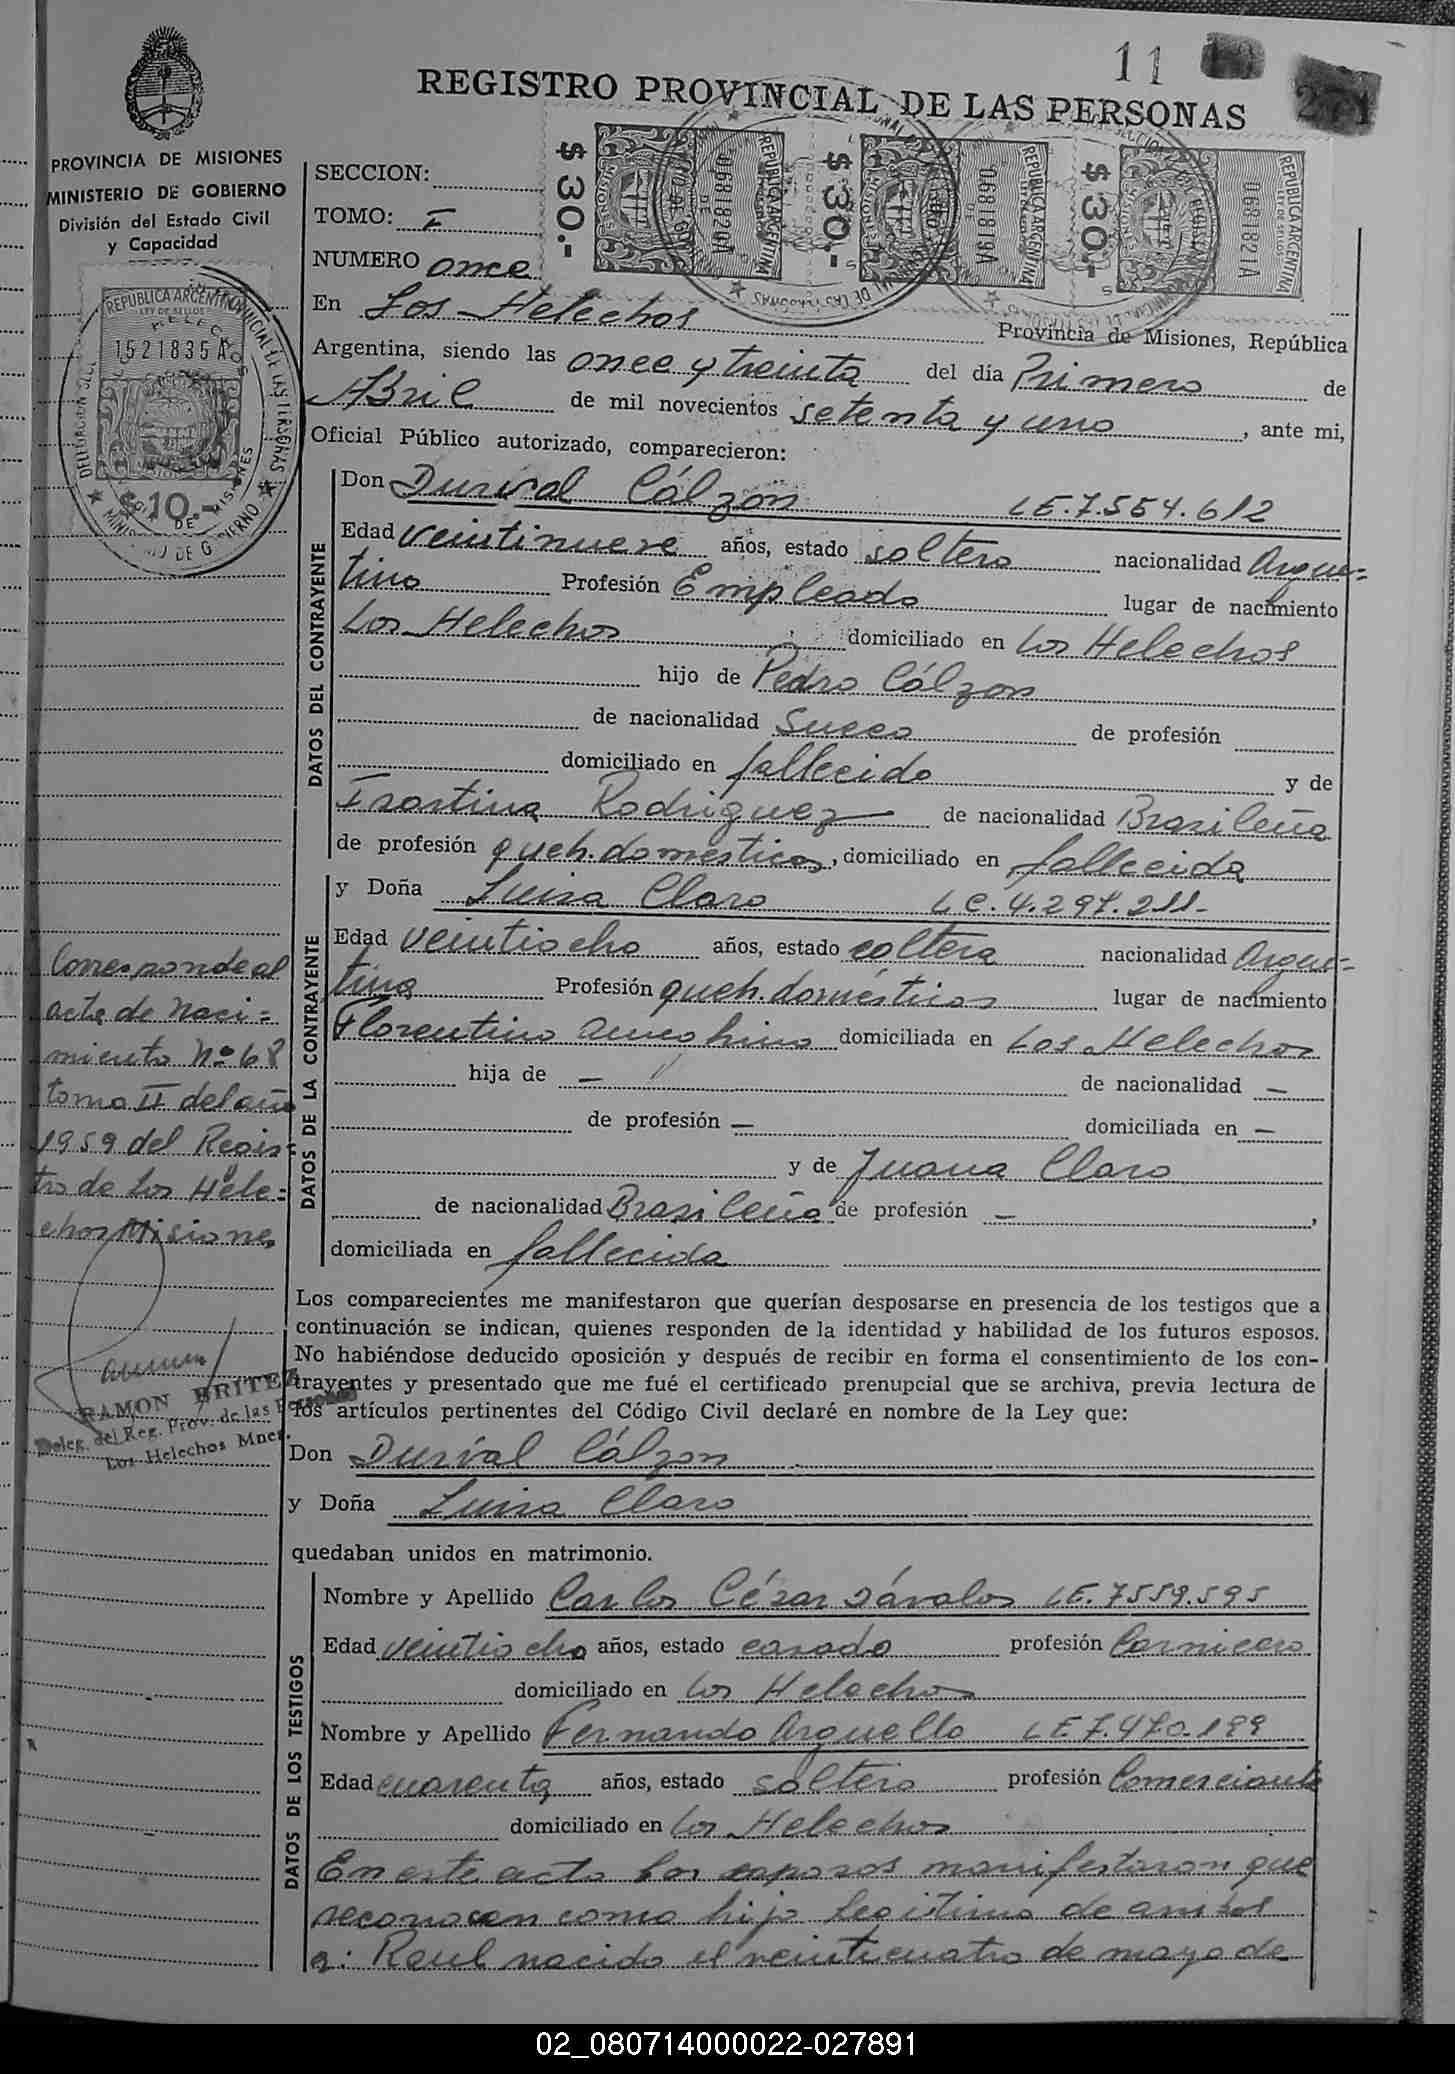 11
REGISTRO PROVINCIAL DE LAS PERSONAS
PROVINCIA DE MISIONES
MINISTERIO DE GOBIERNO
División del Estado Civil
y Capacidad
REPUBLICA ARGENTINA
LEY DE SELLOS
1521835 A
$ 10.-
$ 30.-
0681820A
REPUBLICA ARGENTINA
$ 30.-
0681819A
REPUBLICA ARGENTINA
$ 30.-
0681821A
REPUBLICA ARGENTINA
LEY DE SELLOS
SECCION:
TOMO: I
NUMERO once
En Los Helechos Provincia de Misiones, República
Argentina, siendo las once y treinta del día Primero de
Abril de mil novecientos setenta y uno, ante mi,
Oficial Público autorizado, comparecieron:
DATOS DEL CONTRAYENTE
Don Durival Cálzon LE.7.554.612
Edad veintinueve años, estado soltero nacionalidad Argen=
tino Profesión Empleado lugar de nacimiento
Los Helechos domiciliado en Los Helechos
hijo de Pedro Cálzon
de nacionalidad Sueco de profesión
domiciliado en fallecido y de
Rodriguez de nacionalidad Brasileña
de profesión queh. domesticos, domiciliado en fallecida
DATOS DE LA CONTRAYENTE
y Doña Luisa Claro LC.4.297.211-
Edad veintiocho años, estado soltera nacionalidad Argen=
tina Profesión queh. domésticos lugar de nacimiento
Florentino Ameghino domiciliada en Los Helechos
hija de — de nacionalidad —
de profesión — domiciliada en —
y de Juana Claro
de nacionalidad Brasileña de profesión —,
domiciliada en fallecida
Corresponde al
acta de Naci=
miento Nº 68
tomo II del año
1959 del Regis=
tro de Los Hele=
chos Misiones
RAMON BRITEZ
Deleg. del Reg. Prov. de las Personas
Los Helechos Mnes.
Los comparecientes me manifestaron que querían desposarse en presencia de los testigos que a
continuación se indican, quienes responden de la identidad y habilidad de los futuros esposos.
No habiéndose deducido oposición y después de recibir en forma el consentimiento de los con-
trayentes y presentado que me fué el certificado prenupcial que se archiva, previa lectura de
los artículos pertinentes del Código Civil declaré en nombre de la Ley que:
Don Durival Cálzon
y Doña Luisa Claro
quedaban unidos en matrimonio.
DATOS DE LOS TESTIGOS
Nombre y Apellido Carlos César Dávalos LE.7559.595
Edad veintiocho años, estado casado profesión Carnicero
domiciliado en Los Helechos
Nombre y Apellido Fernando Arguello LE 7.470.199
Edad cuarenta años, estado soltero profesión Comerciante
domiciliado en Los Helechos
En este acto los esposos manifestaron que
reconocen como hijo legitimo de ambos
a: Raul nacido el veinticuatro de mayo de
02_080714000022-027891